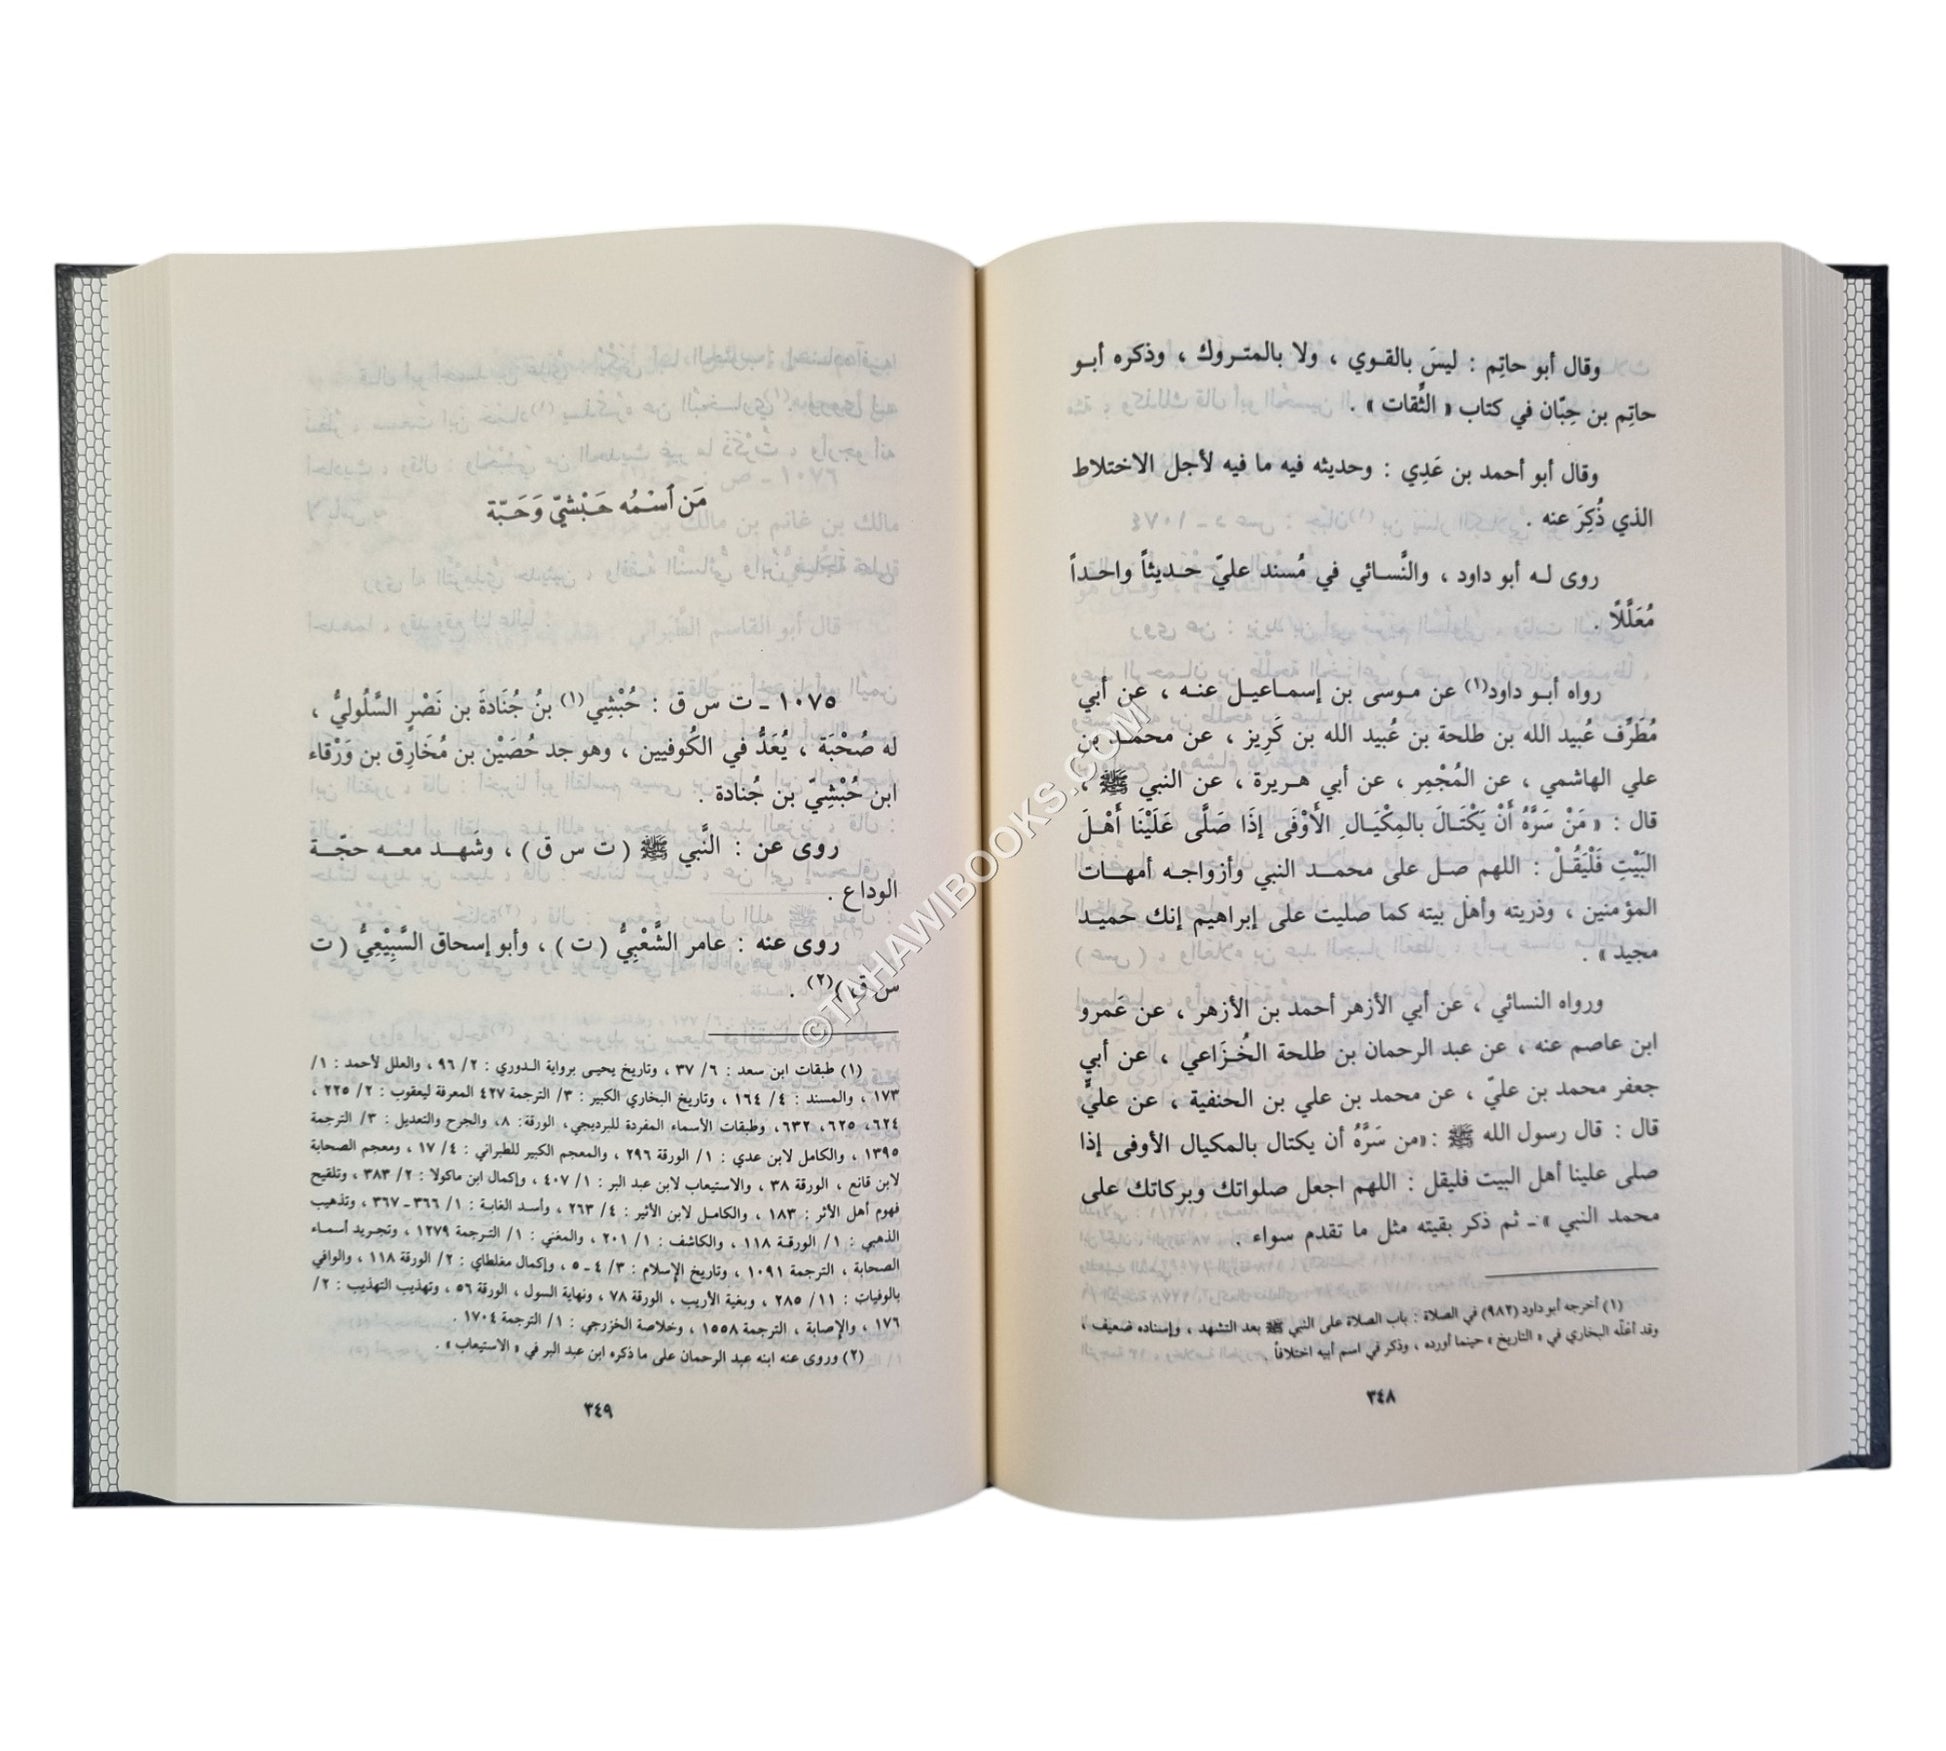 وقال أبو حاتِم : ليسَ بالقوي ، ولا بالمتروك ، وذكره أبو
حاتِم بن حِبّان في كتاب « الثِّقات » .
وقال أبو أحمد بن عَدِي : وحديثه فيه ما فيه لأجل الاختلاط
الذي ذُكِرَ عنه .
روى له أبو داود ، والنَّسائي في مُسند عليّ حديثاً واحداً
مُعَلَّلاً .
رواه أبو داود(١) عن موسى بن إسماعيل عنه ، عن أبي
مُطَرِّف عُبيد الله بن طلحة بن عُبيد الله بن كَرِيز ، عن محمد بن
علي الهاشمي ، عن المُجْمِر ، عن أبي هريرة ، عن النبي ﷺ ،
قال : « مَنْ سَرَّهُ أَنْ يَكْتَالَ بالمِكْيَالِ الأَوْفَى إذَا صَلَّى عَلَيْنَا أَهْلَ
البَيْتِ فَلْيَقُلْ : اللهم صل على محمد النبي وأزواجه أمهات
المؤمنين ، وذريته وأهل بيته كما صليت على إبراهيم إنك حميد
مجيد » .
ورواه النسائي ، عن أبي الأزهر أحمد بن الأزهر ، عن عَمرو
ابن عاصم عنه ، عن عبد الرحمان بن طلحة الخُزَاعي ، عن أبي
جعفر محمد بن عليّ ، عن محمد بن علي بن الحنفية ، عن عليٍّ
قال : قال رسول الله ﷺ : «من سَرَّهُ أن يكتال بالمكيال الأوفى إذا
صلى علينا أهل البيت فليقل : اللهم اجعل صلواتك وبركاتك على
محمد النبي » ـ ثم ذكر بقيته مثل ما تقدم سواء .
(١) أخرجه أبو داود (٩٨٢) في الصلاة : باب الصلاة على النبي ﷺ بعد التشهد ، وإسناده ضعيف ،
وقد أعلّه البخاري في « التاريخ » حينما أورده ، وذكر في اسم أبيه اختلافاً .
٣٤٨
مَن اسْمُه حَبْشيّ وَحَبّة
١٠٧٥ ـ ت س ق : حُبْشِي(١) بنُ جُنَادةَ بن نَصْرٍ السَّلُوليُّ ،
له صُحْبَة ، يُعَدُّ في الكُوفيين ، وهو جد حُصَيْن بن مُخَارِق بن وَرْقاء
ابن حُبْشِيّ بن جُنادة .
روى عن : النَّبي ﷺ ( ت س ق ) ، وشَهد معه حجّة
الوداع .
روى عنه : عامر الشَّعْبِيُّ ( ت ) ، وأبو إسحاق السَّبِيْعِيُّ ( ت
س ق )(٢) .
(١) طبقات ابن سعد : ٦/ ٣٧ ، وتاريخ يحيى برواية الدوري : ٢/ ٩٦ ، والعلل لأحمد : ١/
١٧٣ ، والمسند : ٤/ ١٦٤ ، وتاريخ البخاري الكبير : ٣/ الترجمة ٤٢٧ المعرفة ليعقوب : ٢/ ٢٢٥ ،
٦٢٤، ٦٢٥، ٦٣٢، وطبقات الأسماء المفردة للبرديجي، الورقة: ٨، والجرح والتعديل : ٣/ الترجمة
١٣٩٥ ، والكامل لابن عدي : ١/ الورقة ٢٩٦ ، والمعجم الكبير للطبراني : ٤/ ١٧ ، ومعجم الصحابة
لابن قانع ، الورقة ٣٨ ، والاستيعاب لابن عبد البر : ١/ ٤٠٧ ، وإكمال ابن ماكولا : ٢/ ٣٨٣ ، وتلقيح
فهوم أهل الأثر : ١٨٣ ، والكامل لابن الأثير : ٤/ ٢٦٣ ، وأسد الغابة : ١/ ٣٦٦ـ ٣٦٧ ، وتذهيب
الذهبي : ١/ الورقة ١١٨ ، والكاشف : ١/ ٢٠١ ، والمغني : ١/ الترجمة ١٢٧٩ ، وتجريد أسماء
الصحابة ، الترجمة ١٠٩١ ، وتاريخ الإسلام : ٣/ ٤ ـ ٥ ، وإكمال مغلطاي : ٢/ الورقة ١١٨ ، والوافي
بالوفيات : ١١/ ٢٨٥ ، وبغية الأريب ، الورقة ٧٨ ، ونهاية السول ، الورقة ٥٦ ، وتهذيب التهذيب : ٢/
١٧٦ ، والإصابة ، الترجمة ١٥٥٨ ، وخلاصة الخزرجي : ١/ الترجمة ١٧٠٤ .
(٢) وروى عنه ابنه عبد الرحمان على ما ذكره ابن عبد البر في « الاستيعاب » .
٣٤٩
©TAHAWIBOOKS.COM